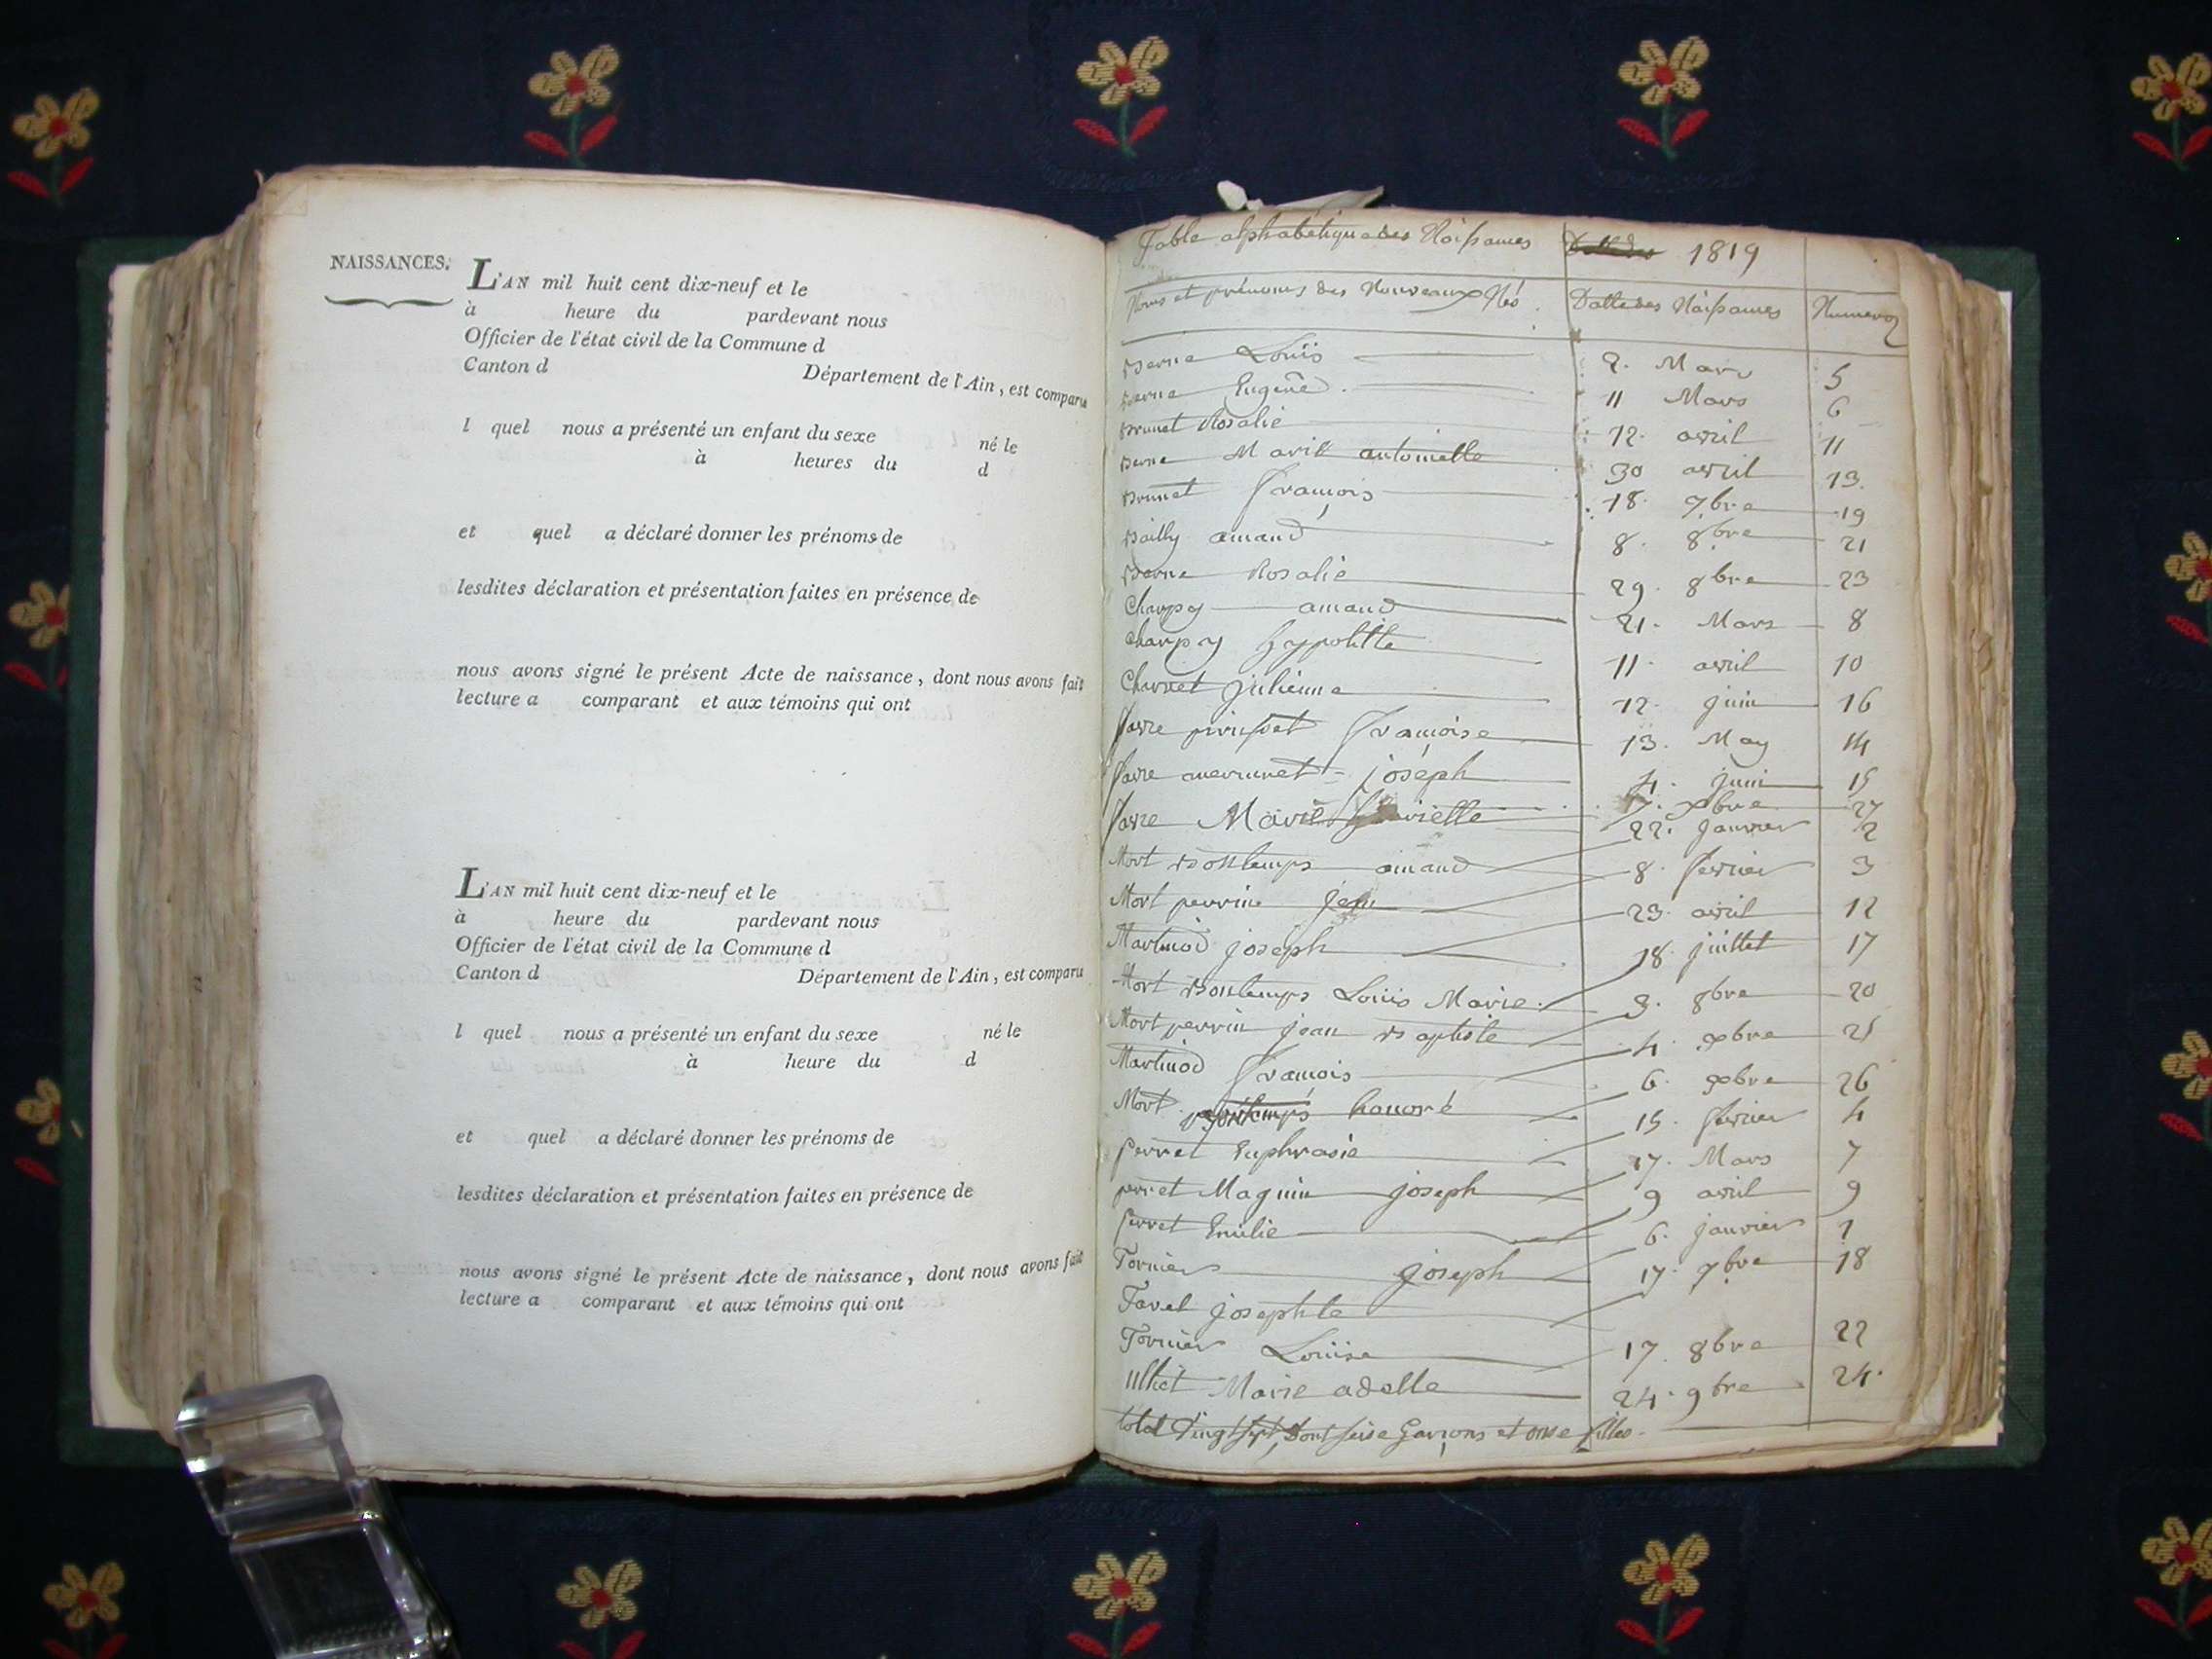 NAISSANCES.
L'AN mil huit cent dix-neuf et le
à heure du pardevant nous
Officier de l'état civil de la Commune d
Canton d Département de l'Ain, est comparu
l quel nous a présenté un enfant du sexe né le
à heures du d
et quel a déclaré donner les prénoms de
lesdites déclaration et présentation faites en présence de
nous avons signé le présent Acte de naissance, dont nous avons fait
lecture a comparant et aux témoins qui ont
L'AN mil huit cent dix-neuf et le
à heure du pardevant nous
Officier de l'état civil de la Commune d
Canton d Département de l'Ain, est comparu
l quel nous a présenté un enfant du sexe né le
à heure du d
et quel a déclaré donner les prénoms de
lesdites déclaration et présentation faites en présence de
nous avons signé le présent Acte de naissance, dont nous avons fait
lecture a comparant et aux témoins qui ont
Table alphabétique des Naissances 1819
Noms et prénoms des Nouveaux Nés Datte des Naissances Numeros
Berne Louis 2. Mars 5
Berne Eugene 11 Mars 6
Brunet Rosalie 12. avril 11
Berne Marie antoinette 30 avril 13.
Brunet François 18. 7bre 19
Bailly amand 8. 8bre 21
Berne Rosalie 29. 8bre 23
Charpy amand 21. Mars 8
Charpy hyppolitte 11. avril 10
Charvet julienne 12. juin 16
favre Françoise 13. May 14
favre joséph 4. juin 15
favre Marie 17. xbre 27
Mort Bontemps amand 22. Janvier 2
Mort perrin Jean 8. fevrier 3
Martinod joséph 23. avril 12
Mort Bontemps Louis Marie. 18. juillet 17
Mort perrin jean Baptiste 3. 8bre 20
Martinod François 4. xbre 25
Mort honoré 6. xbre 26
perret Euphrasie 15. fevrier 4
perret Magnin joseph 17. Mars 7
perret Emilie 9 avril 9
Tornier joseph 6. janvier 1
Tavel josephte 17. 7bre 18
Tornier Louise 17. 8bre 22
Marie adelle 24. 9bre 24.
total Vingt sept, dont seise Garçons et onse filles.